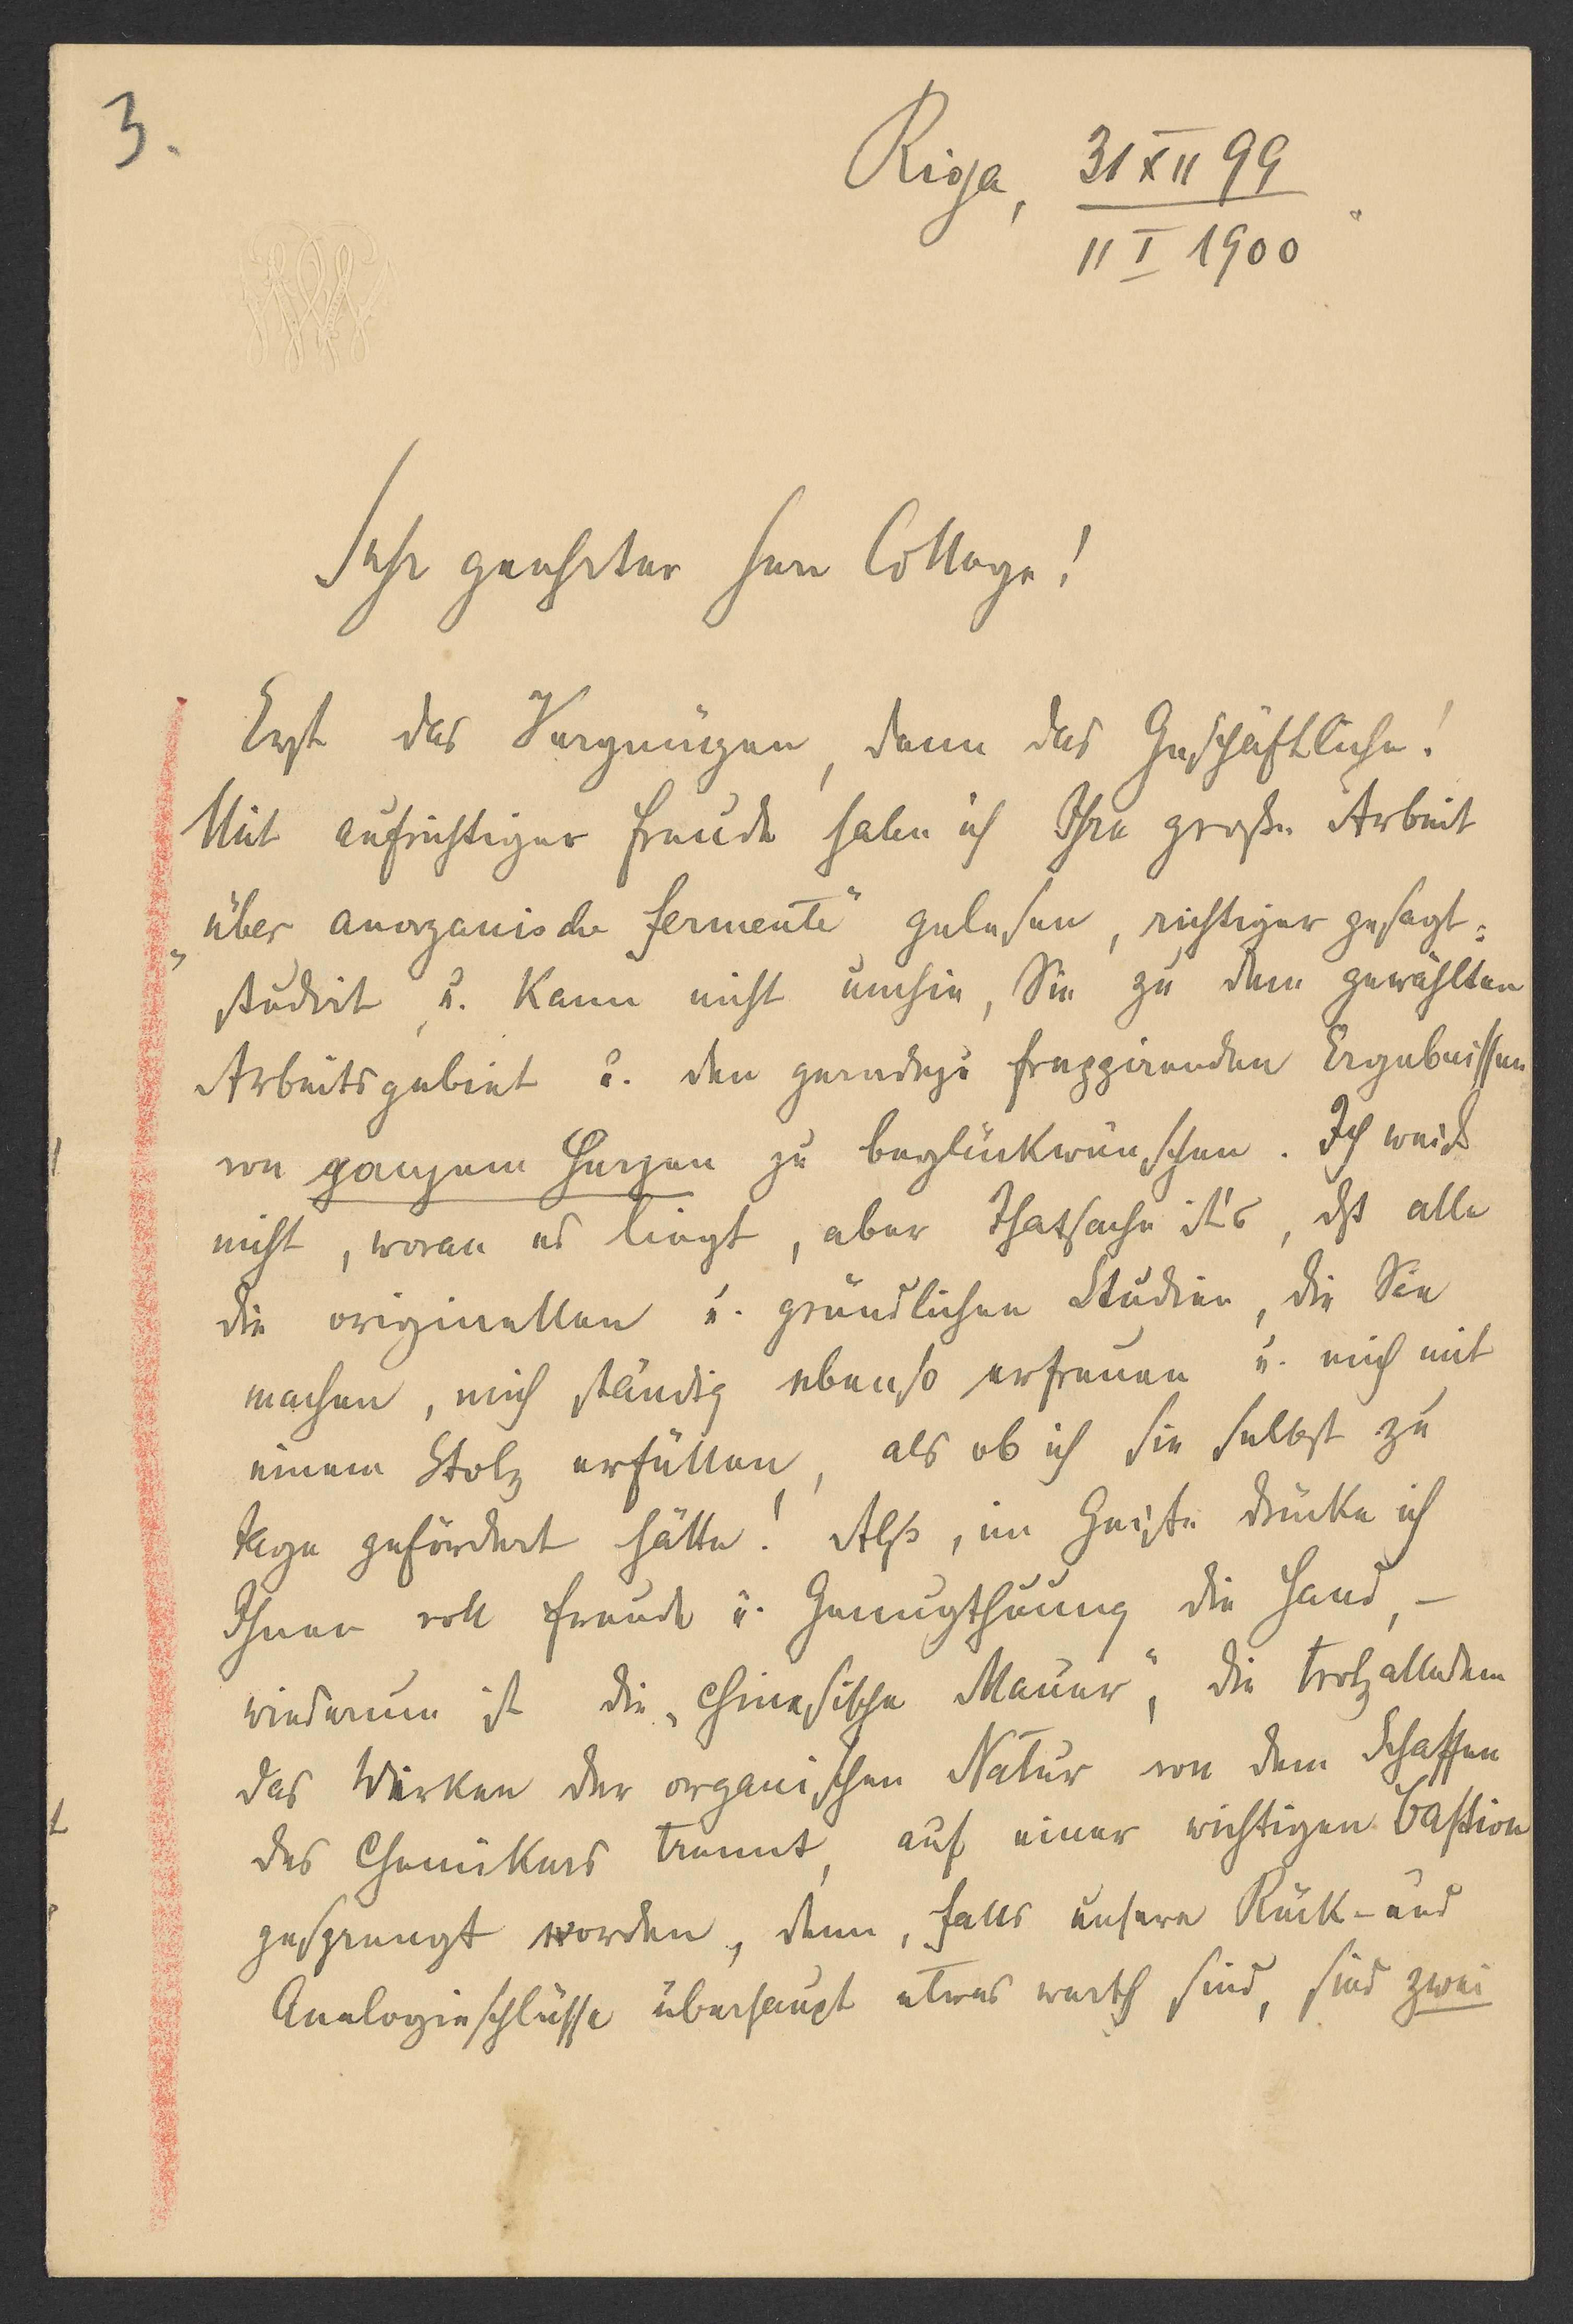 3.
Riga, 31 XII 99
11 I 1900.
Sehr geehrter Herr College!
Erst das Vergnügen, dann das Geschäftliche!
Mit aufrichtiger Freude habe ich Ihre große Arbeit
„über anorganische Fermente" gelesen, richtiger gesagt:
studirt, u. kann nicht umhin, Sie zu dem gewählten
Arbeitsgebiet u. den geradezu frappirenden Ergebnissen
von ganzem Herzen zu beglückwünschen. Ich weiß
nicht, woran es liegt, aber Thatsache ist's, dß alle
die originellen u. gründlichen Studien, die Sie
machen, mich ständig ebenso erfreuen u. mich mit
einem Stolz erfüllen, als ob ich sie selbst zu
tage gefördert hätte! Also, im Geiste drücke ich
Ihnen voll Freude u. Genugthuung die Hand, –
wiederum ist die „chinesische Mauer", die trotzalledem
das Wirken der organischen Natur von dem Schaffen
des Chemikers trennt, auf einer wichtigen Bastion
gesprengt worden, denn, falls unsere Rück- und
Analogieschlüsse überhaupt etwas werth sind, sind zwei